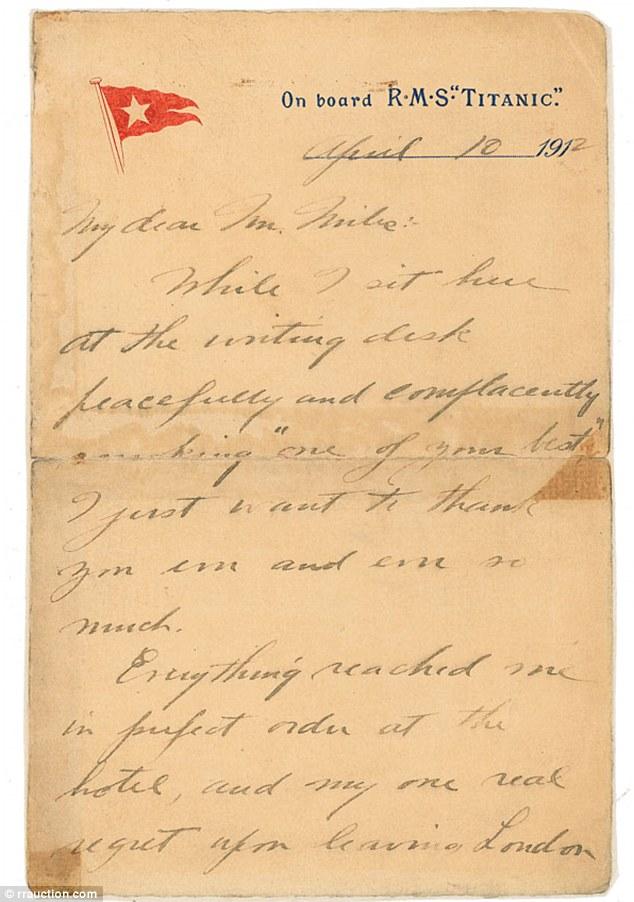 On board R·M·S "TITANIC."
April 10 1912
My dear Mr. Miles:-
While I sit here
at the writing desk
peacefully and complacently
smoking "one of your best,"
I just want to thank
you ever and ever so
much.
Everything reached me
in perfect order at the
hotel, and my one real
regret upon leaving London
© rrauction.com